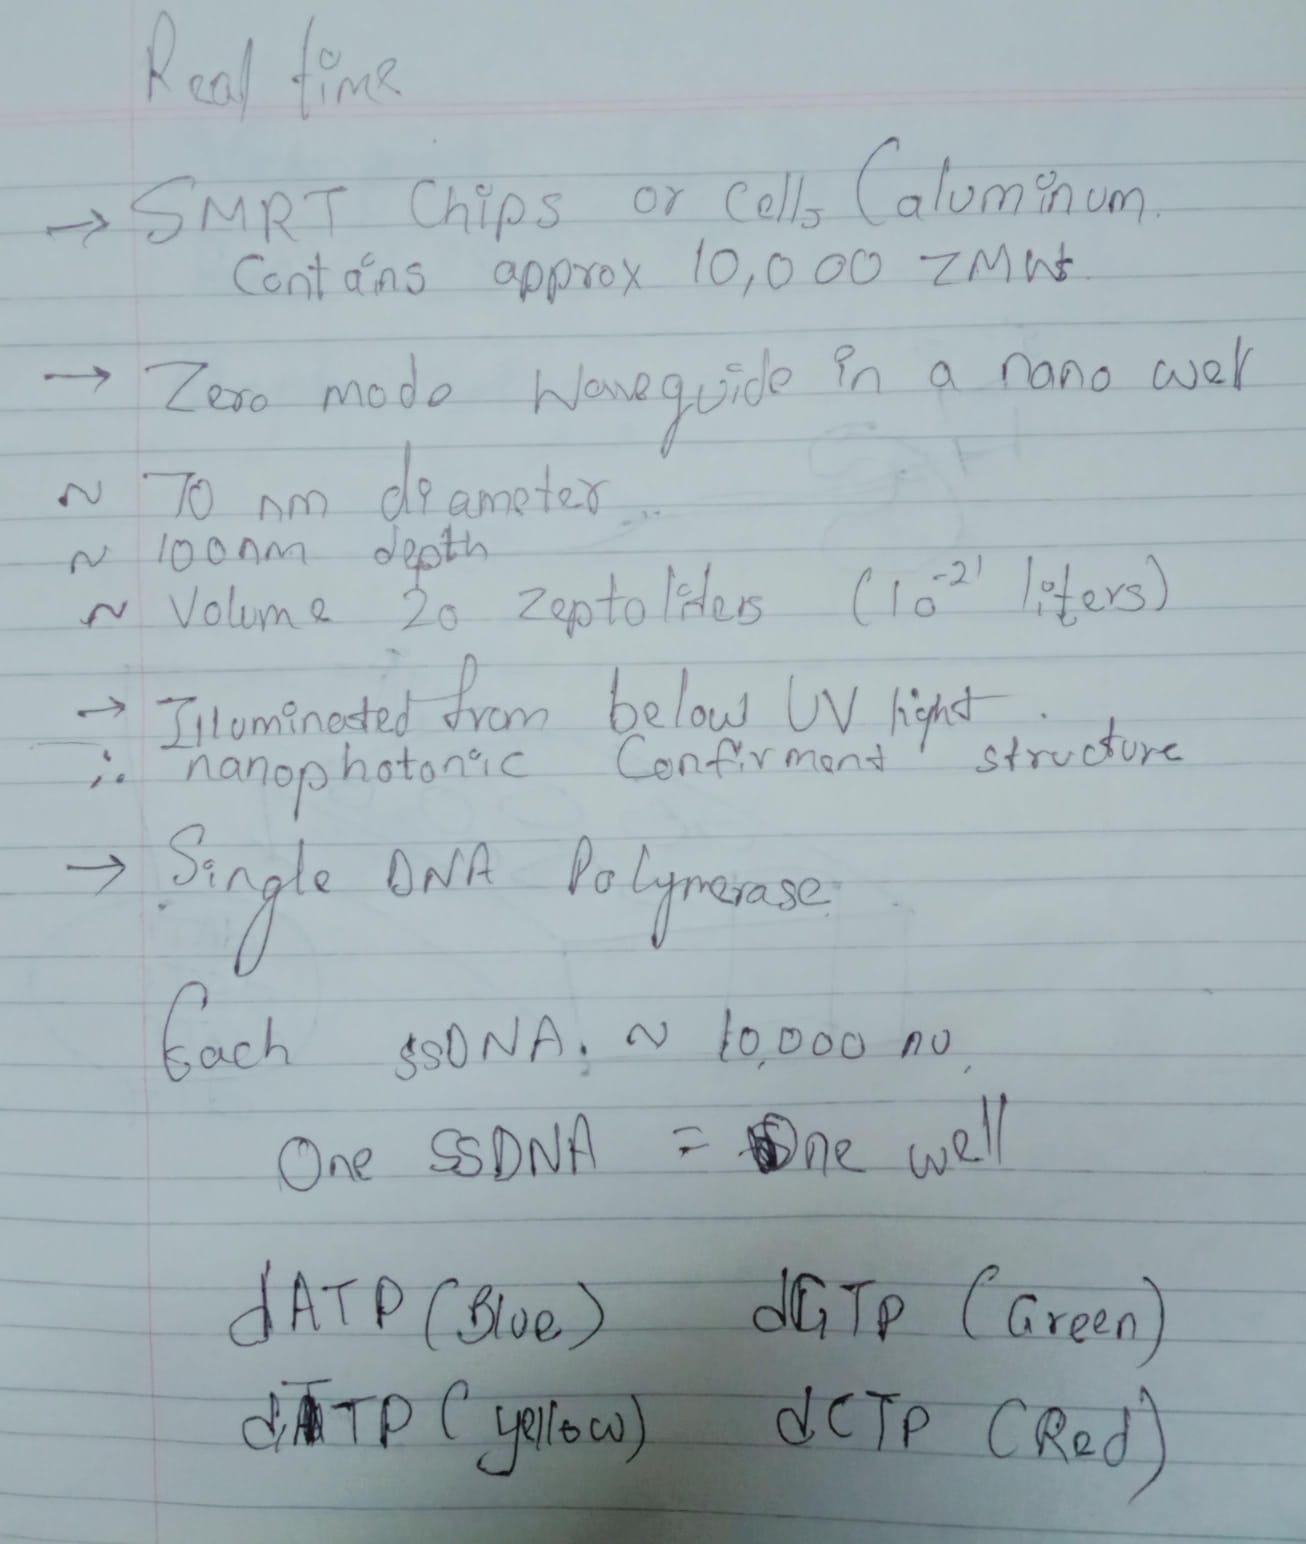 Real time
→ SMRT Chips or Cells (aluminum.
Contains approx 10,000 ZMWs.
→ Zero mode Waveguide in a nano well
~ 70 nm diameter
~ 100nm depth
~ Volume 20 zepto liters (10⁻²¹ liters)
→ Illuminated from below UV light.
∴ nanophotonic Confirment structure
→ Single DNA Polymerase
Each ssDNA. ~ 10,000 nu,
One SSDNA = One well
dATP (Blue) dGTP (Green)
dTTP (yellow) dCTP (Red)